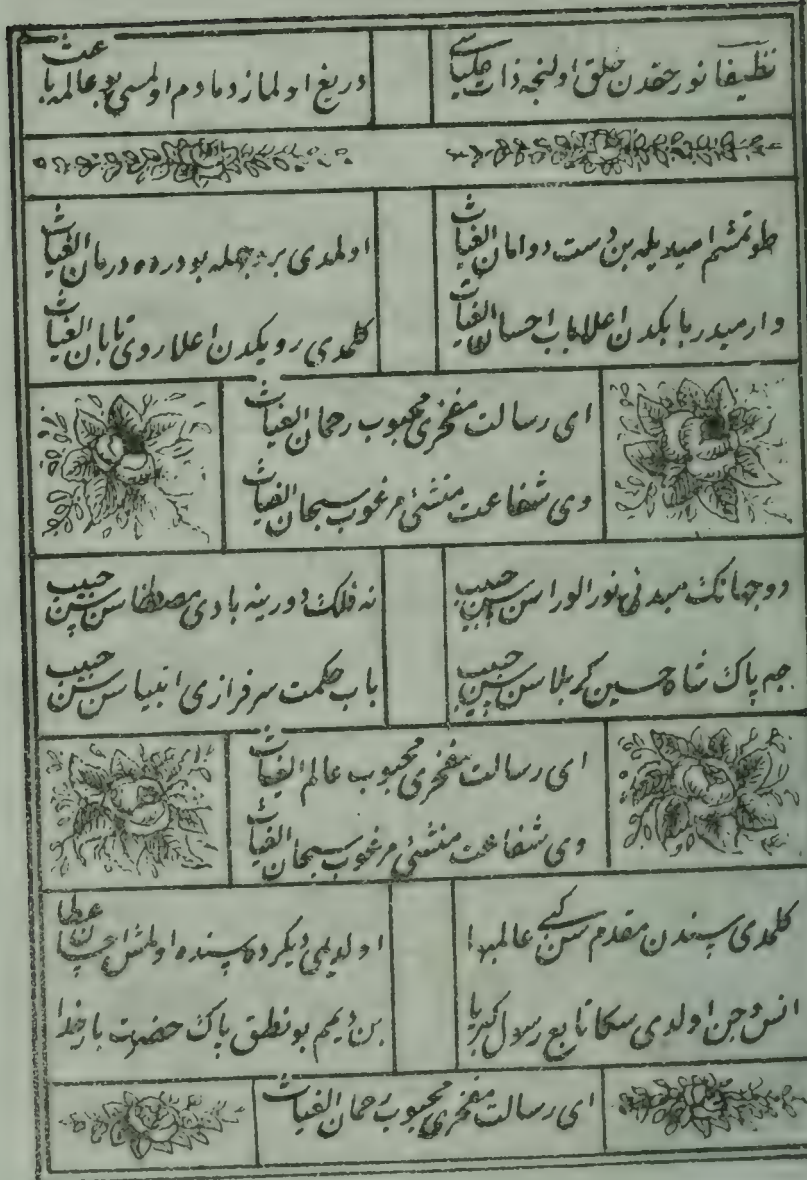 نظيفا نور حقدن خلق اولنجه ذات
دريغ اولماز دمادم اولمسى بو عالمه باعث
طوتمشم اميديله بن دست دوامان الغياث
اولمدى بر وجهله بو درده درمان الغياث
وارميدر بابكدن اعلا باب احسان الغياث
كلمدى رويكدن اعلا روى تابان الغياث
اى رسالت مفخرى محبوب رحمان الغياث
وى شفاعت منشئى مرغوب سبحان الغياث
دو جهانك مبدئى نور الورا سن سن حبيب
نه فلك دورينه بادى مصطفا سن سن حبيب
جد پاك شاه حسين كربلا سن سن حبيب
باب حكمت سرفرازى انبيا سن سن حبيب
اى رسالت مفخرى محبوب عالم الغياث
وى شفاعت منشئى مرغوب سبحان الغياث
كلمدى سندن مقدم سن كبى عالمبها
اولديمى ديكرده سنده اولمش
انس و جن اولدى سكا تابع رسول كبريا
بن ديمم بو نطق پاك حضرت بار خدا
اى رسالت مفخرى محبوب رحمان الغياث